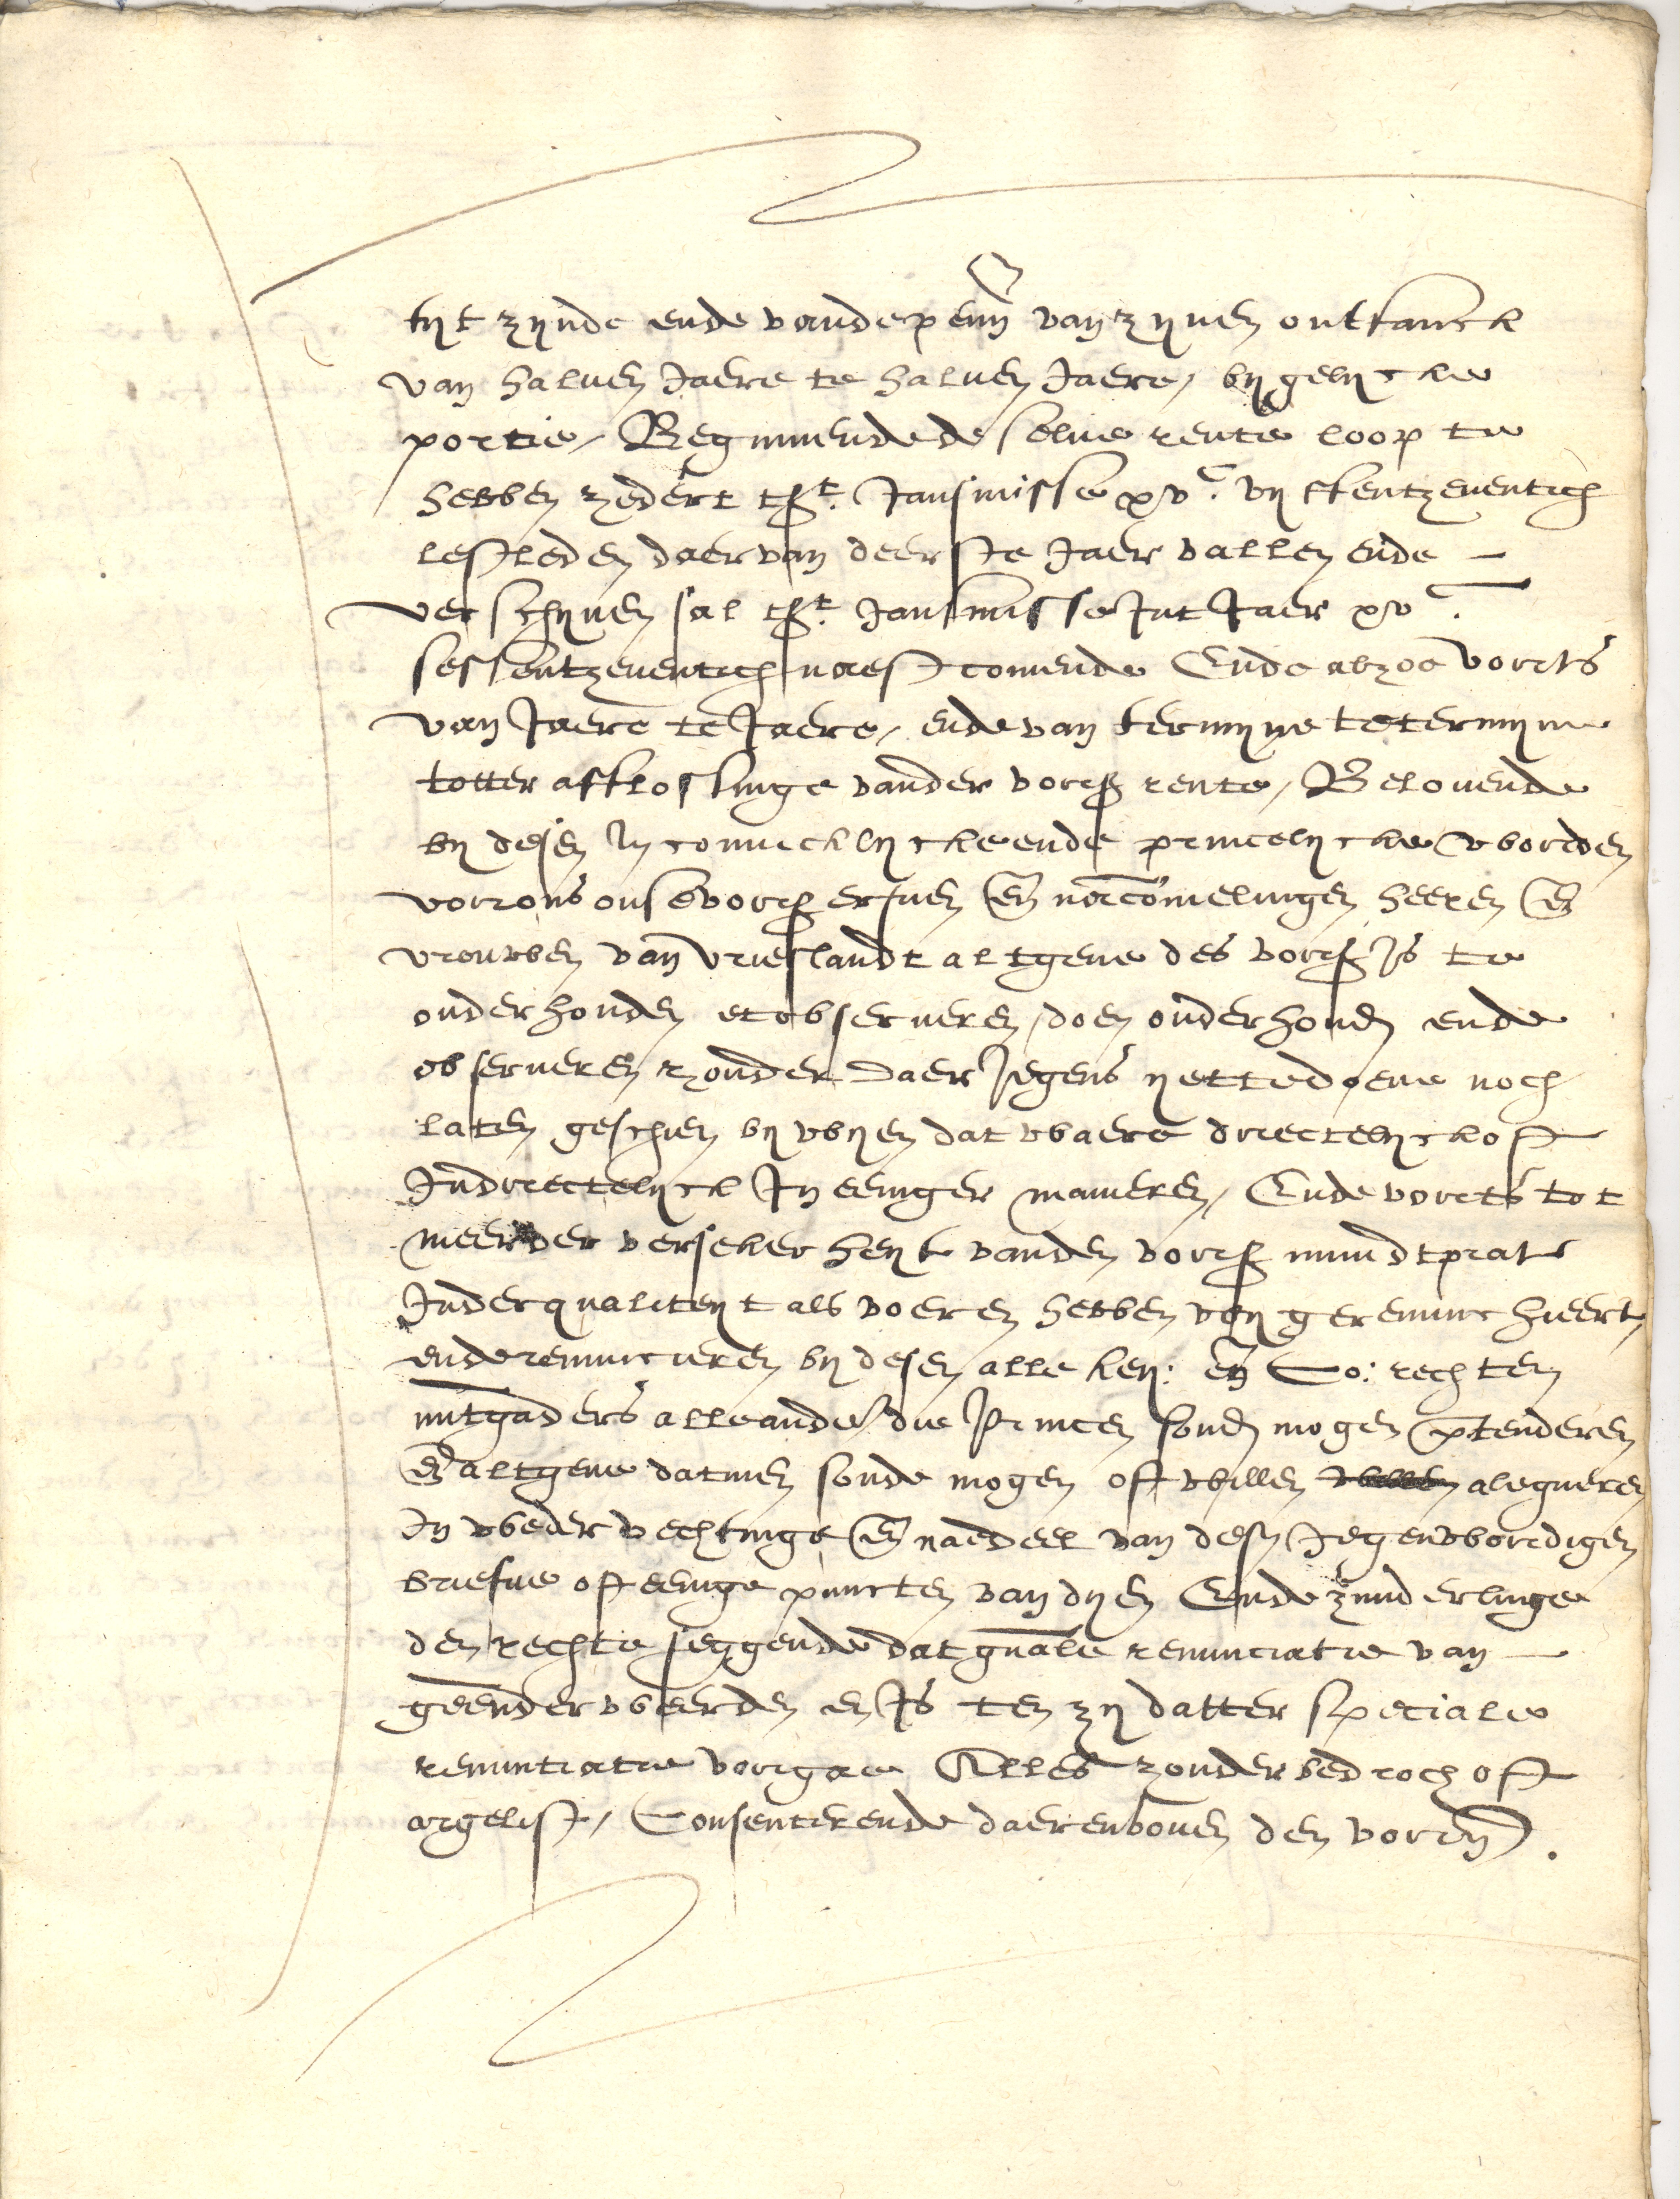 tyt zynde ende vande penn̄ van zynen ontfanck
van halven Jaere te halven Jaere, by gelycke
portie, Beginnende de selve rente loop te
hebben zedert tSt. Jansmisse xvc. vyffentzeventich
lestleden daervan deerste Jaer vallen ende –
verschynen sal tSt. Jansmisse Int Jaer xvc.
sessentzeventich naestcomende Ende alzoe vorts
van Jaere te Jaere, ende van termyne te termyne
totter afflossinge vander vors rente, Belovende
by desen In conincklycke ende princelycke woorden
voor ons onse vors erfven en̄ nacomelingen heeren en̄
vrouwen van vrieslandt altgene des vors Is te
onderhouden et observeren, doen onderhouden ende
observeren zonder daer Jegens yet te doene noch
laten geschien by wyen dat waere directelyck oft
Indirectelyck In eeniger manieren, Ende vorts tot
meerder versekerheyt vanden vors mundtprat
Inder qualiteyt als voeren hebben wy gerenunchieert,
ende renuncieren by desen alle key: en̄ Co: rechten
mitgaders alle ander die princen soud mogen p̄tenderen
en̄ altgene datmen soude mogen oft willen alegueren
In wedervechtinge en̄ naedeel van desen Jegenwoordigen
briefve oft eenige puncten van dyen Ende zunderlinge
den rechte seggende dat gn̄ale renunciatie van –
geender weerden en Is ten zy datter speciale
renuntiatie voorgae Alles zonder bedroch oft
argelist, Consenterende daerenboven den voorn̄.